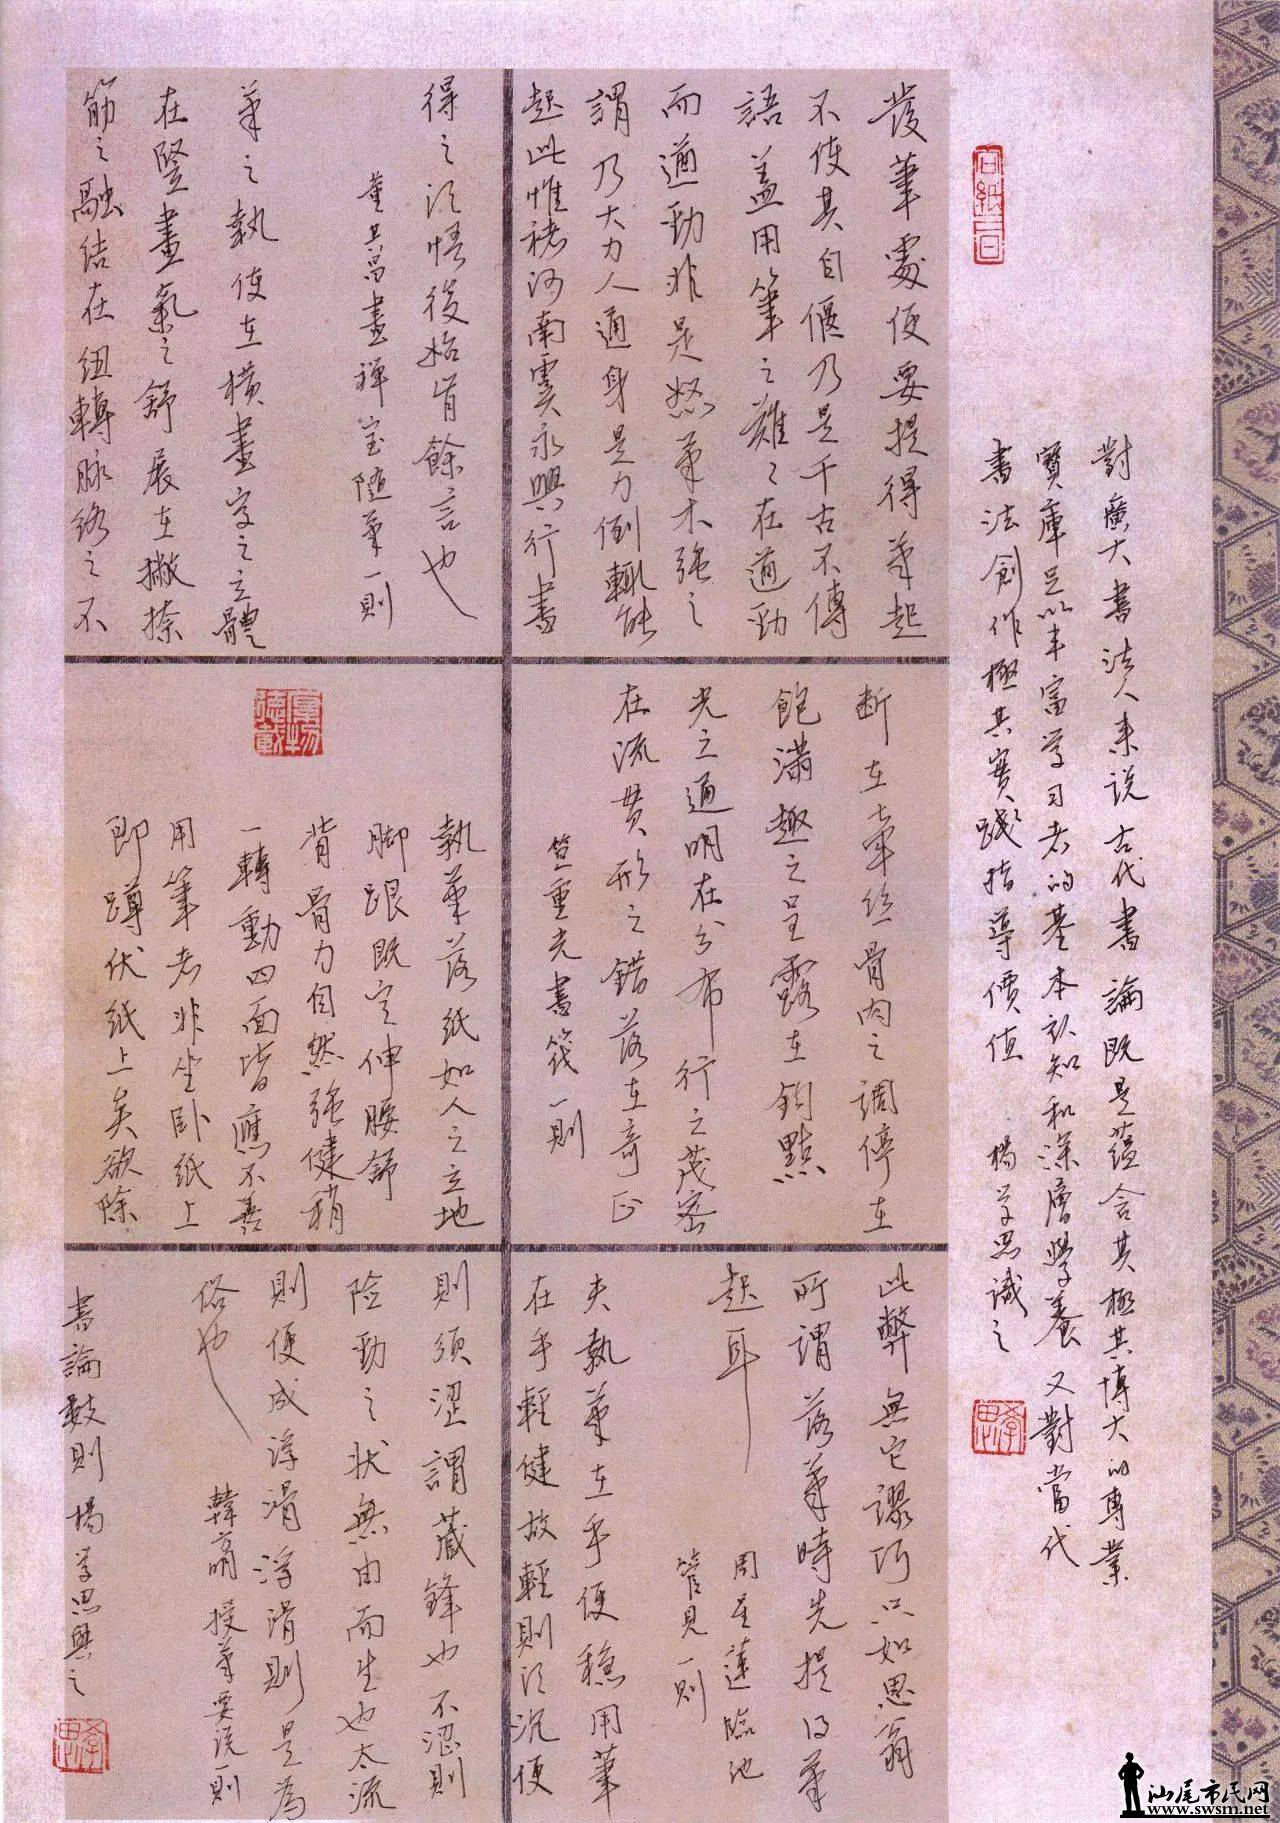 對廣大書法人来说古代書論既是蕴含其極其博大的專業
寶庫足以丰富学习者的基本认知和深層學養又對當代
書法創作極其實踐指導價值 楊学思識之
學思
發筆處便要提得筆起
不使其自偃乃是千古不傳
語蓋用筆之難々在遒勁
而遒勁非是怒筆木强之
謂乃大力人通身是力倒輒能
起此惟褚河南虞永興行書
得之须悟後始肯餘言也
董其昌畫禪室随筆一則
筆之執使在横畫字之立體
在豎畫氣之舒展在撇捺
筋之融结在纽轉脉络之不
断在牽丝骨肉之調停在
飽满趣之呈露在鈎點
光之通明在分布行之茂密
在流贯形之錯落在奇正
笪重光書筏一則
厚物德載
執筆落纸如人之立地
脚跟既定伸腰舒
背骨力自然强健稍
一轉動四面皆應不善
用筆者非坐卧纸上
即蹲伏纸上矣欲除
此弊無它謬巧只如思翁
所謂落筆時先提得筆
起耳
周星蓮臨池
管見一則
夫執筆在乎便稳用筆
在乎輕健故輕則须沉便
則须涩謂藏鋒也不涩則
险勁之状無由而生也太流
則便成浮滑浮滑則是為
俗也
韓方明授筆要说一則
書論數則 楊学思
學思
汕尾市民网
www.swsm.net